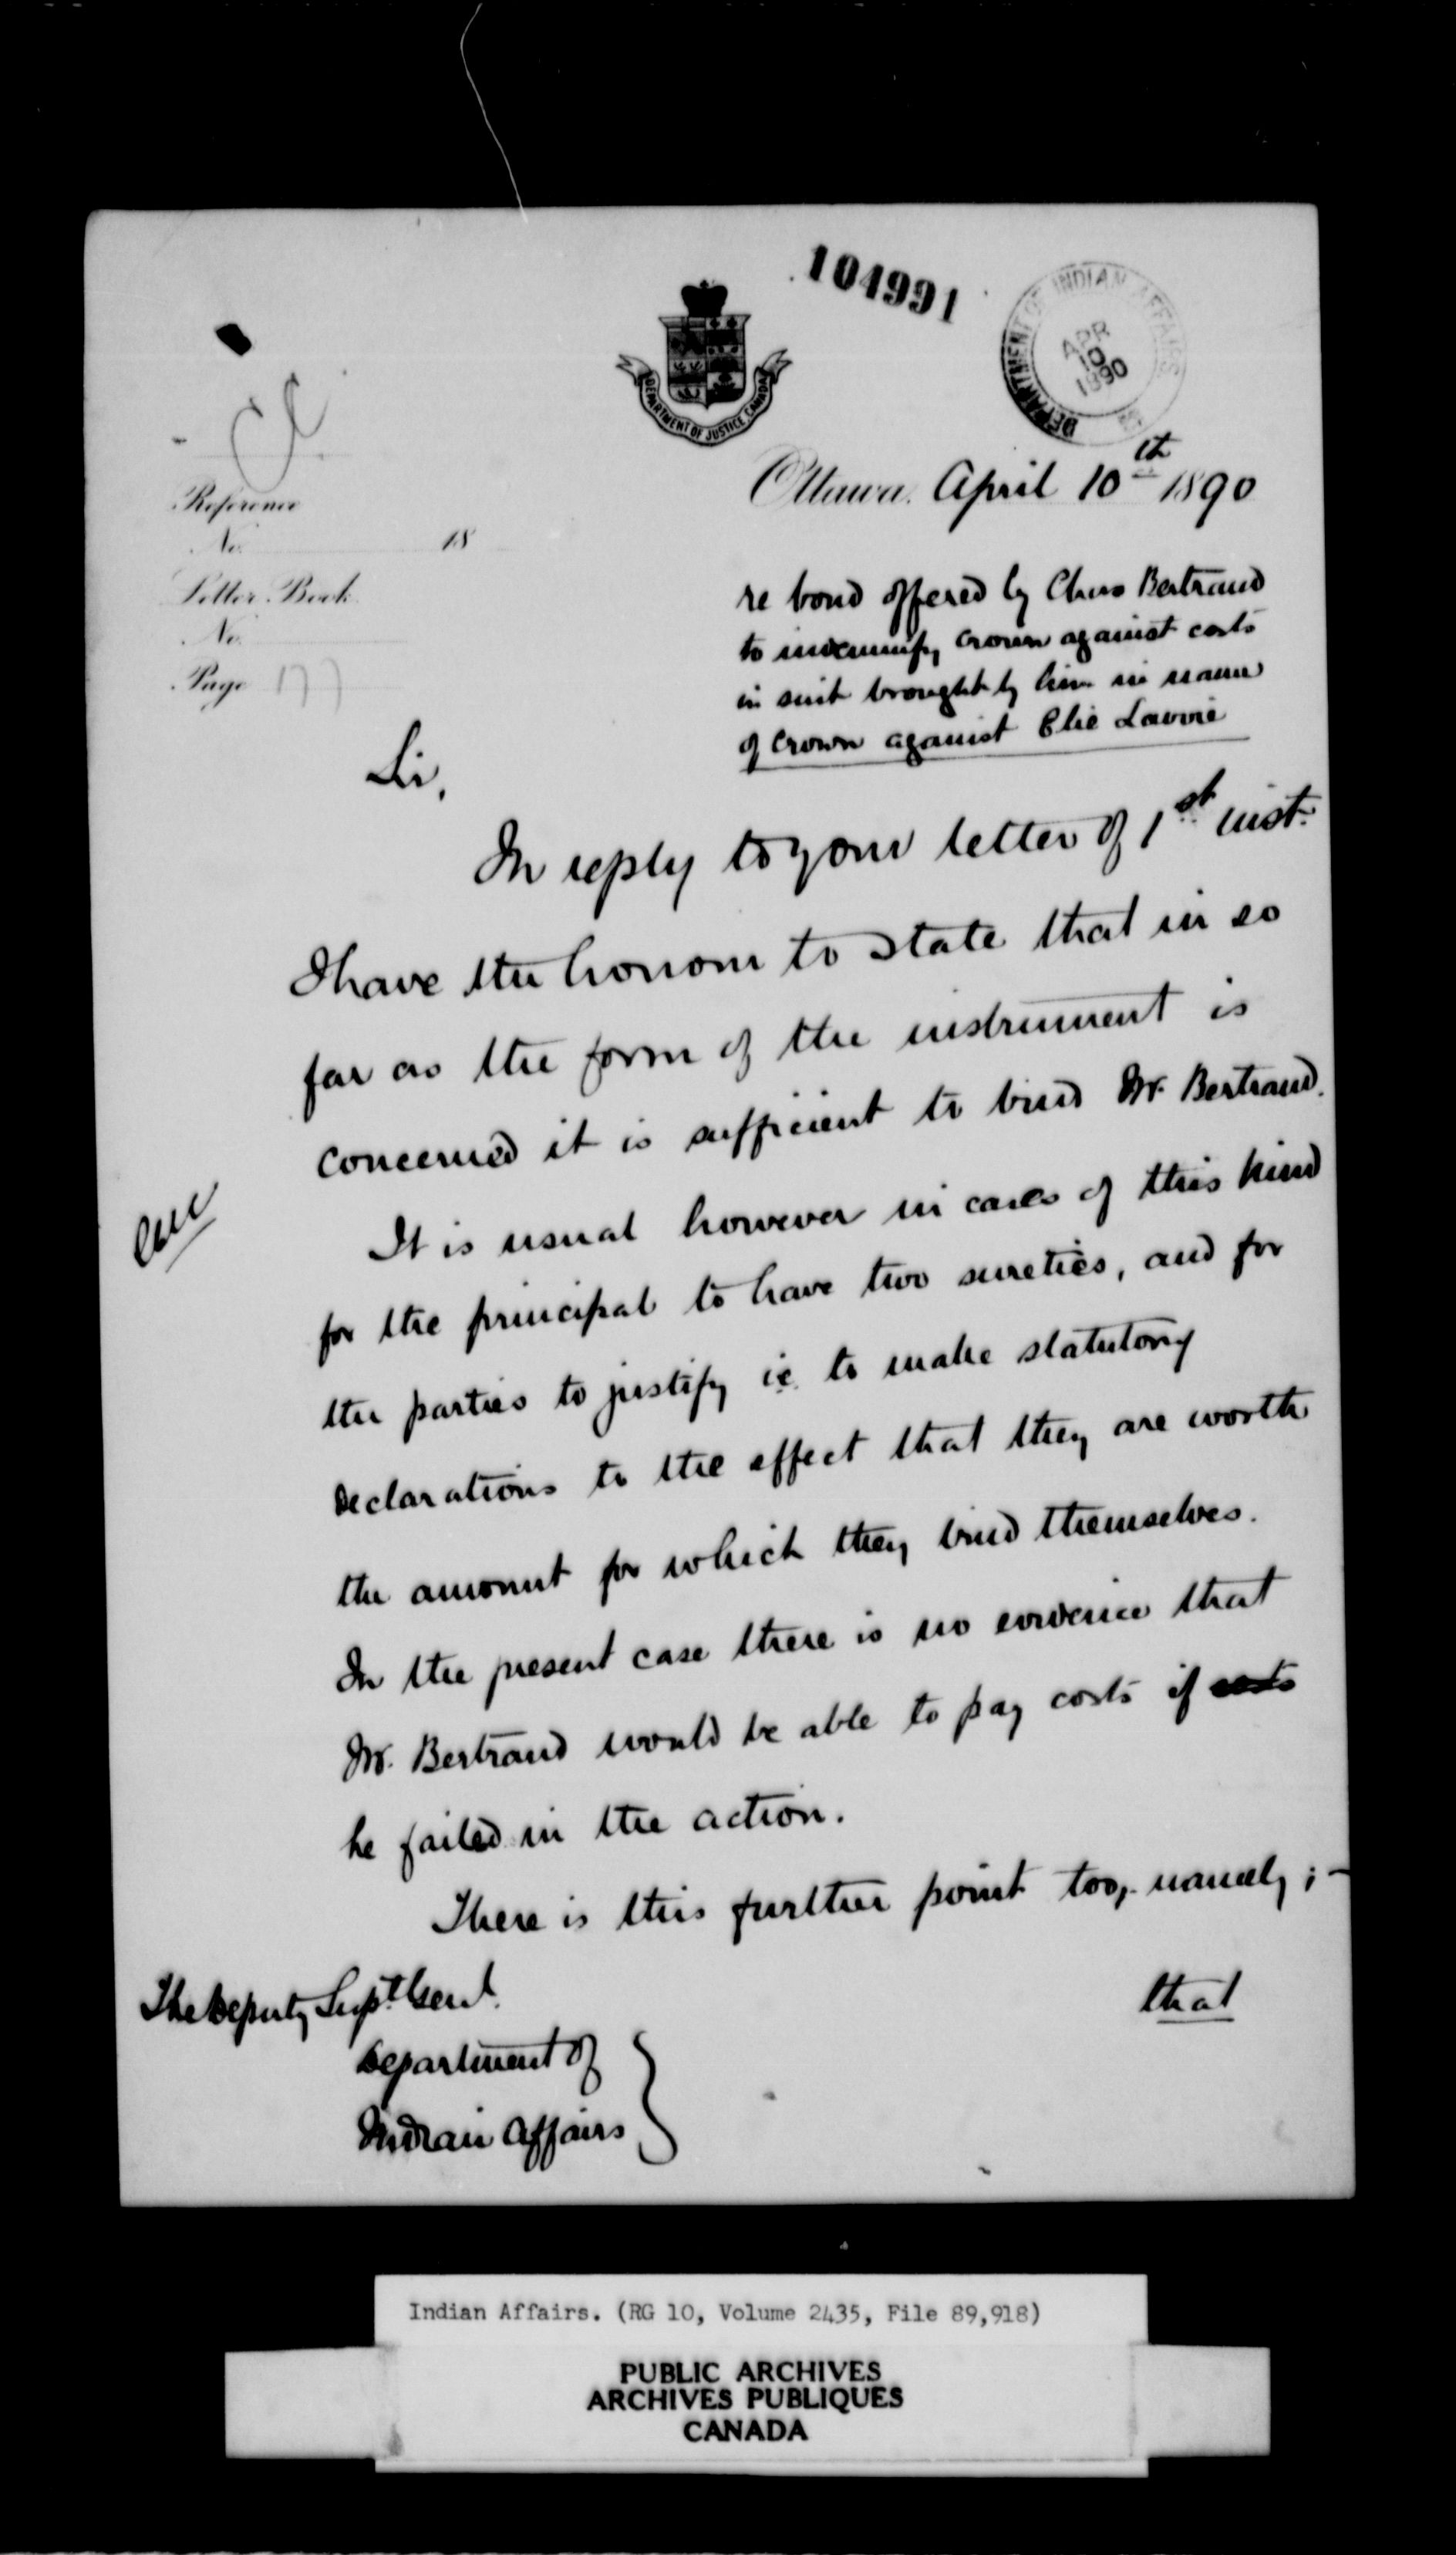 104991
DEPARTMENT OF INDIAN AFFAIRS
APR
10
1890
DEPARTMENT OF JUSTICE, CANADA
Ottawa. April 10th 1890
Reference
No. 18
Letter Book
No.
Page 177
re bond offered by Chas Bertrand
to indemnify Crown against costs
in suit brought by him in name
of Crown against Elie Lavoie
Sir,
In reply to your letter of 1st inst.
I have the honour to state that in so
far as the form of the instrument is
concerned it is sufficient to bind Mr. Bertrand.
It is usual however in cases of this kind
for the principal to have two sureties, and for
the parties to justify ie. to make statutory
declarations to the effect that they are worth
the amount for which they bind themselves.
In the present case there is no evidence that
Mr. Bertrand would be able to pay costs if costs
he failed in the action.
There is this further point too, namely; -
that
The Deputy Supt. Genl.
Department of
Indian Affairs
Indian Affairs. (RG 10, Volume 2435, File 89,918)
PUBLIC ARCHIVES
ARCHIVES PUBLIQUES
CANADA